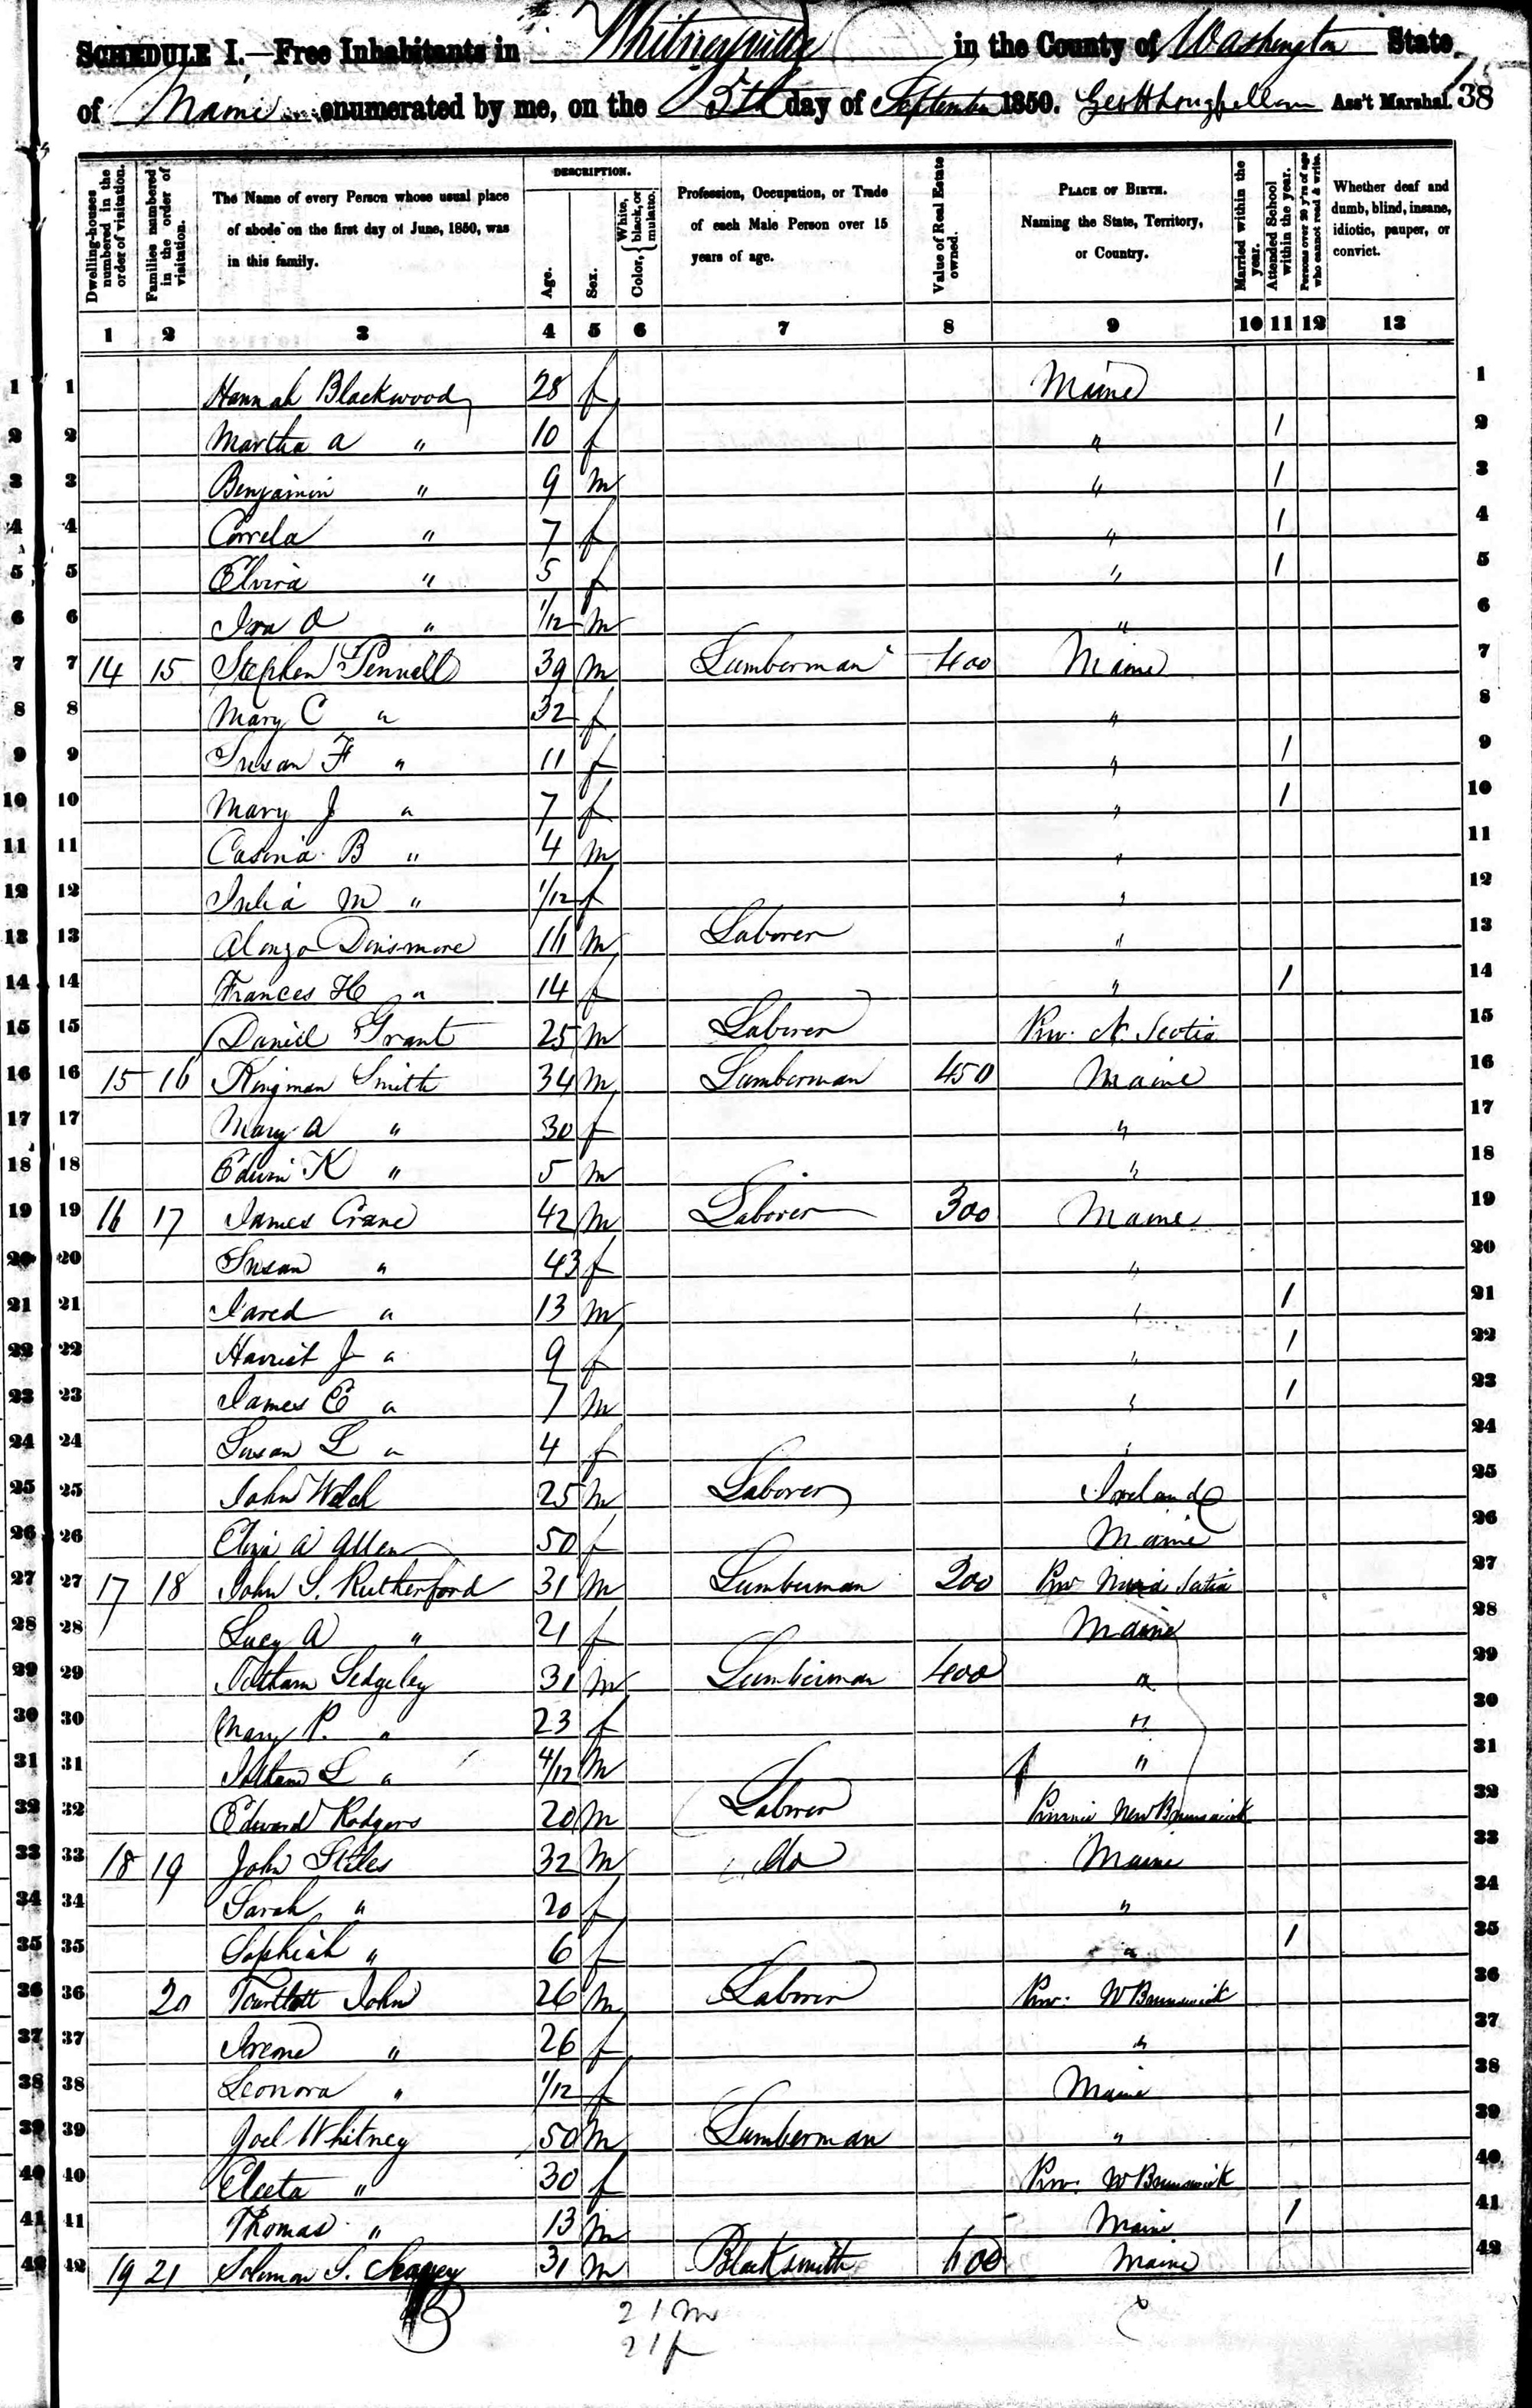 SCHEDULE I.—Free Inhabitants in Whitneyville in the County of Washington State
of Maine enumerated by me, on the 5th day of September 1850. Geo H Longfellow Ass't Marshal. 38
Dwelling-houses numbered in the order of visitation.
Families numbered in the order of visitation.
The Name of every Person whose usual place of abode on the first day of June, 1850, was in this family.
DESCRIPTION.
Age.
Sex.
Color, { White, black, or mulatto.
Profession, Occupation, or Trade of each Male Person over 15 years of age.
Value of Real Estate owned.
PLACE OF BIRTH.
Naming the State, Territory, or Country.
Married within the year.
Attended School within the year.
Persons over 20 y'rs of age who cannot read & write.
Whether deaf and dumb, blind, insane, idiotic, pauper, or convict.
1 2 3 4 5 6 7 8 9 10 11 12 13
1 1 Hannah Blackwood 28 f Maine 1
2 2 Martha A " 10 f " 1 2
3 3 Benjamin " 9 m " 1 3
4 4 " 7 f " 1 4
5 5 Elvira " 5 f " 1 5
6 6 Ira O " 1/12 m " 6
7 7 14 15 Stephen Pennell 39 m Lumberman 400 Maine 7
8 8 Mary C " 32 f " 8
9 9 Susan F " 11 f " 1 9
10 10 Mary J " 7 f " 1 10
11 11 B " 4 m " 11
12 12 Julia M " 1/12 f " 12
13 13 Alonzo Dinsmore 16 m Laborer " 13
14 14 Frances H " 14 f " 1 14
15 15 Daniel Grant 25 m Laborer Prv. N. Scotia 15
16 16 15 16 Kingman Smith 34 m Lumberman 450 Maine 16
17 17 Mary A " 30 f " 17
18 18 Edwin K " 5 m " 18
19 19 16 17 James Crane 42 m Laborer 300 Maine 19
20 20 Susan " 43 f " 20
21 21 Jared " 13 m " 1 21
22 22 Harriet J " 9 f " 1 22
23 23 James E " 7 m " 1 23
24 24 Susan L " 4 f " 24
25 25 John Welch 25 m Laborer Ireland 25
26 26 Eliza A Allen 50 f Maine 26
27 27 17 18 John S. Rutherford 31 m Lumberman 200 Prv Nova Scotia 27
28 28 Lucy A " 21 f Maine 28
29 29 Jotham Sedgeley 31 m Lumberman 400 " 29
30 30 Mary P. " 23 f " 30
31 31 Jotham L " 4/12 m " 31
32 32 Edward Rodgers 20 m Laborer New Brunswick 32
33 33 18 19 John Stiles 32 m do Maine 33
34 34 Sarah " 20 f " 34
35 35 Sophiah " 6 f " 1 35
36 36 20 Tourtlott John 26 m Laborer Prv: N Brunswick 36
37 37 Irene " 26 f " 37
38 38 Leonora " 1/12 f Maine 38
39 39 Joel Whitney 50 m Lumberman " 39
40 40 Electa " 30 f Prv: N Brunswick 40
41 41 Thomas " 13 m Maine 1 41
42 42 19 21 Solomon S. 31 m Blacksmith 600 Maine 42
21 m
21 f